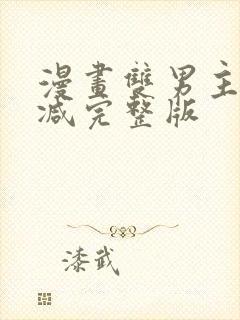 漫畫雙男主
减完整版
漆武